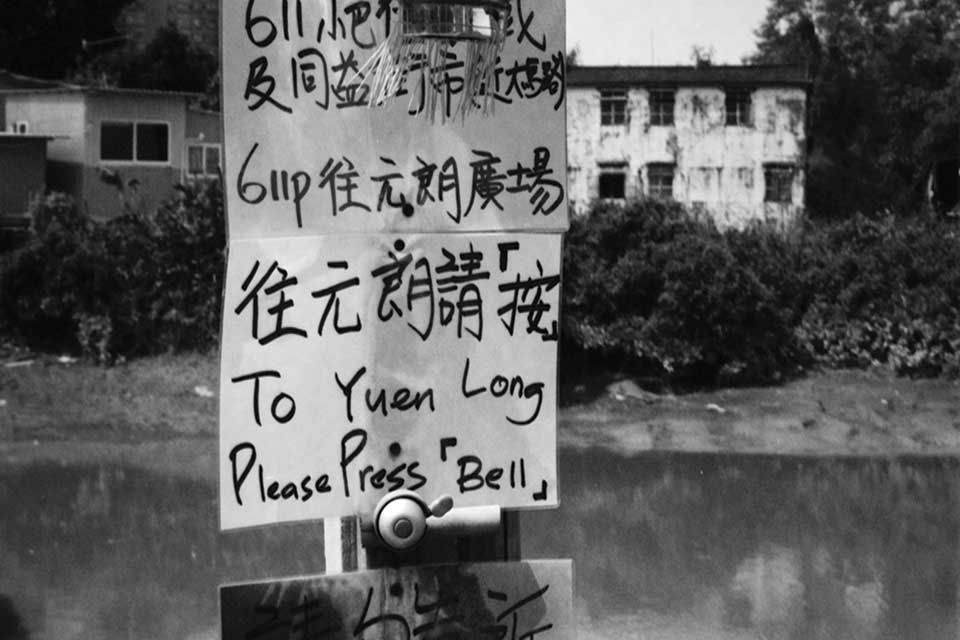 611 小巴
及同益街市近大馬路
611p 往元朗廣場
往元朗請「按」
To Yuen Long
Please Press「Bell」